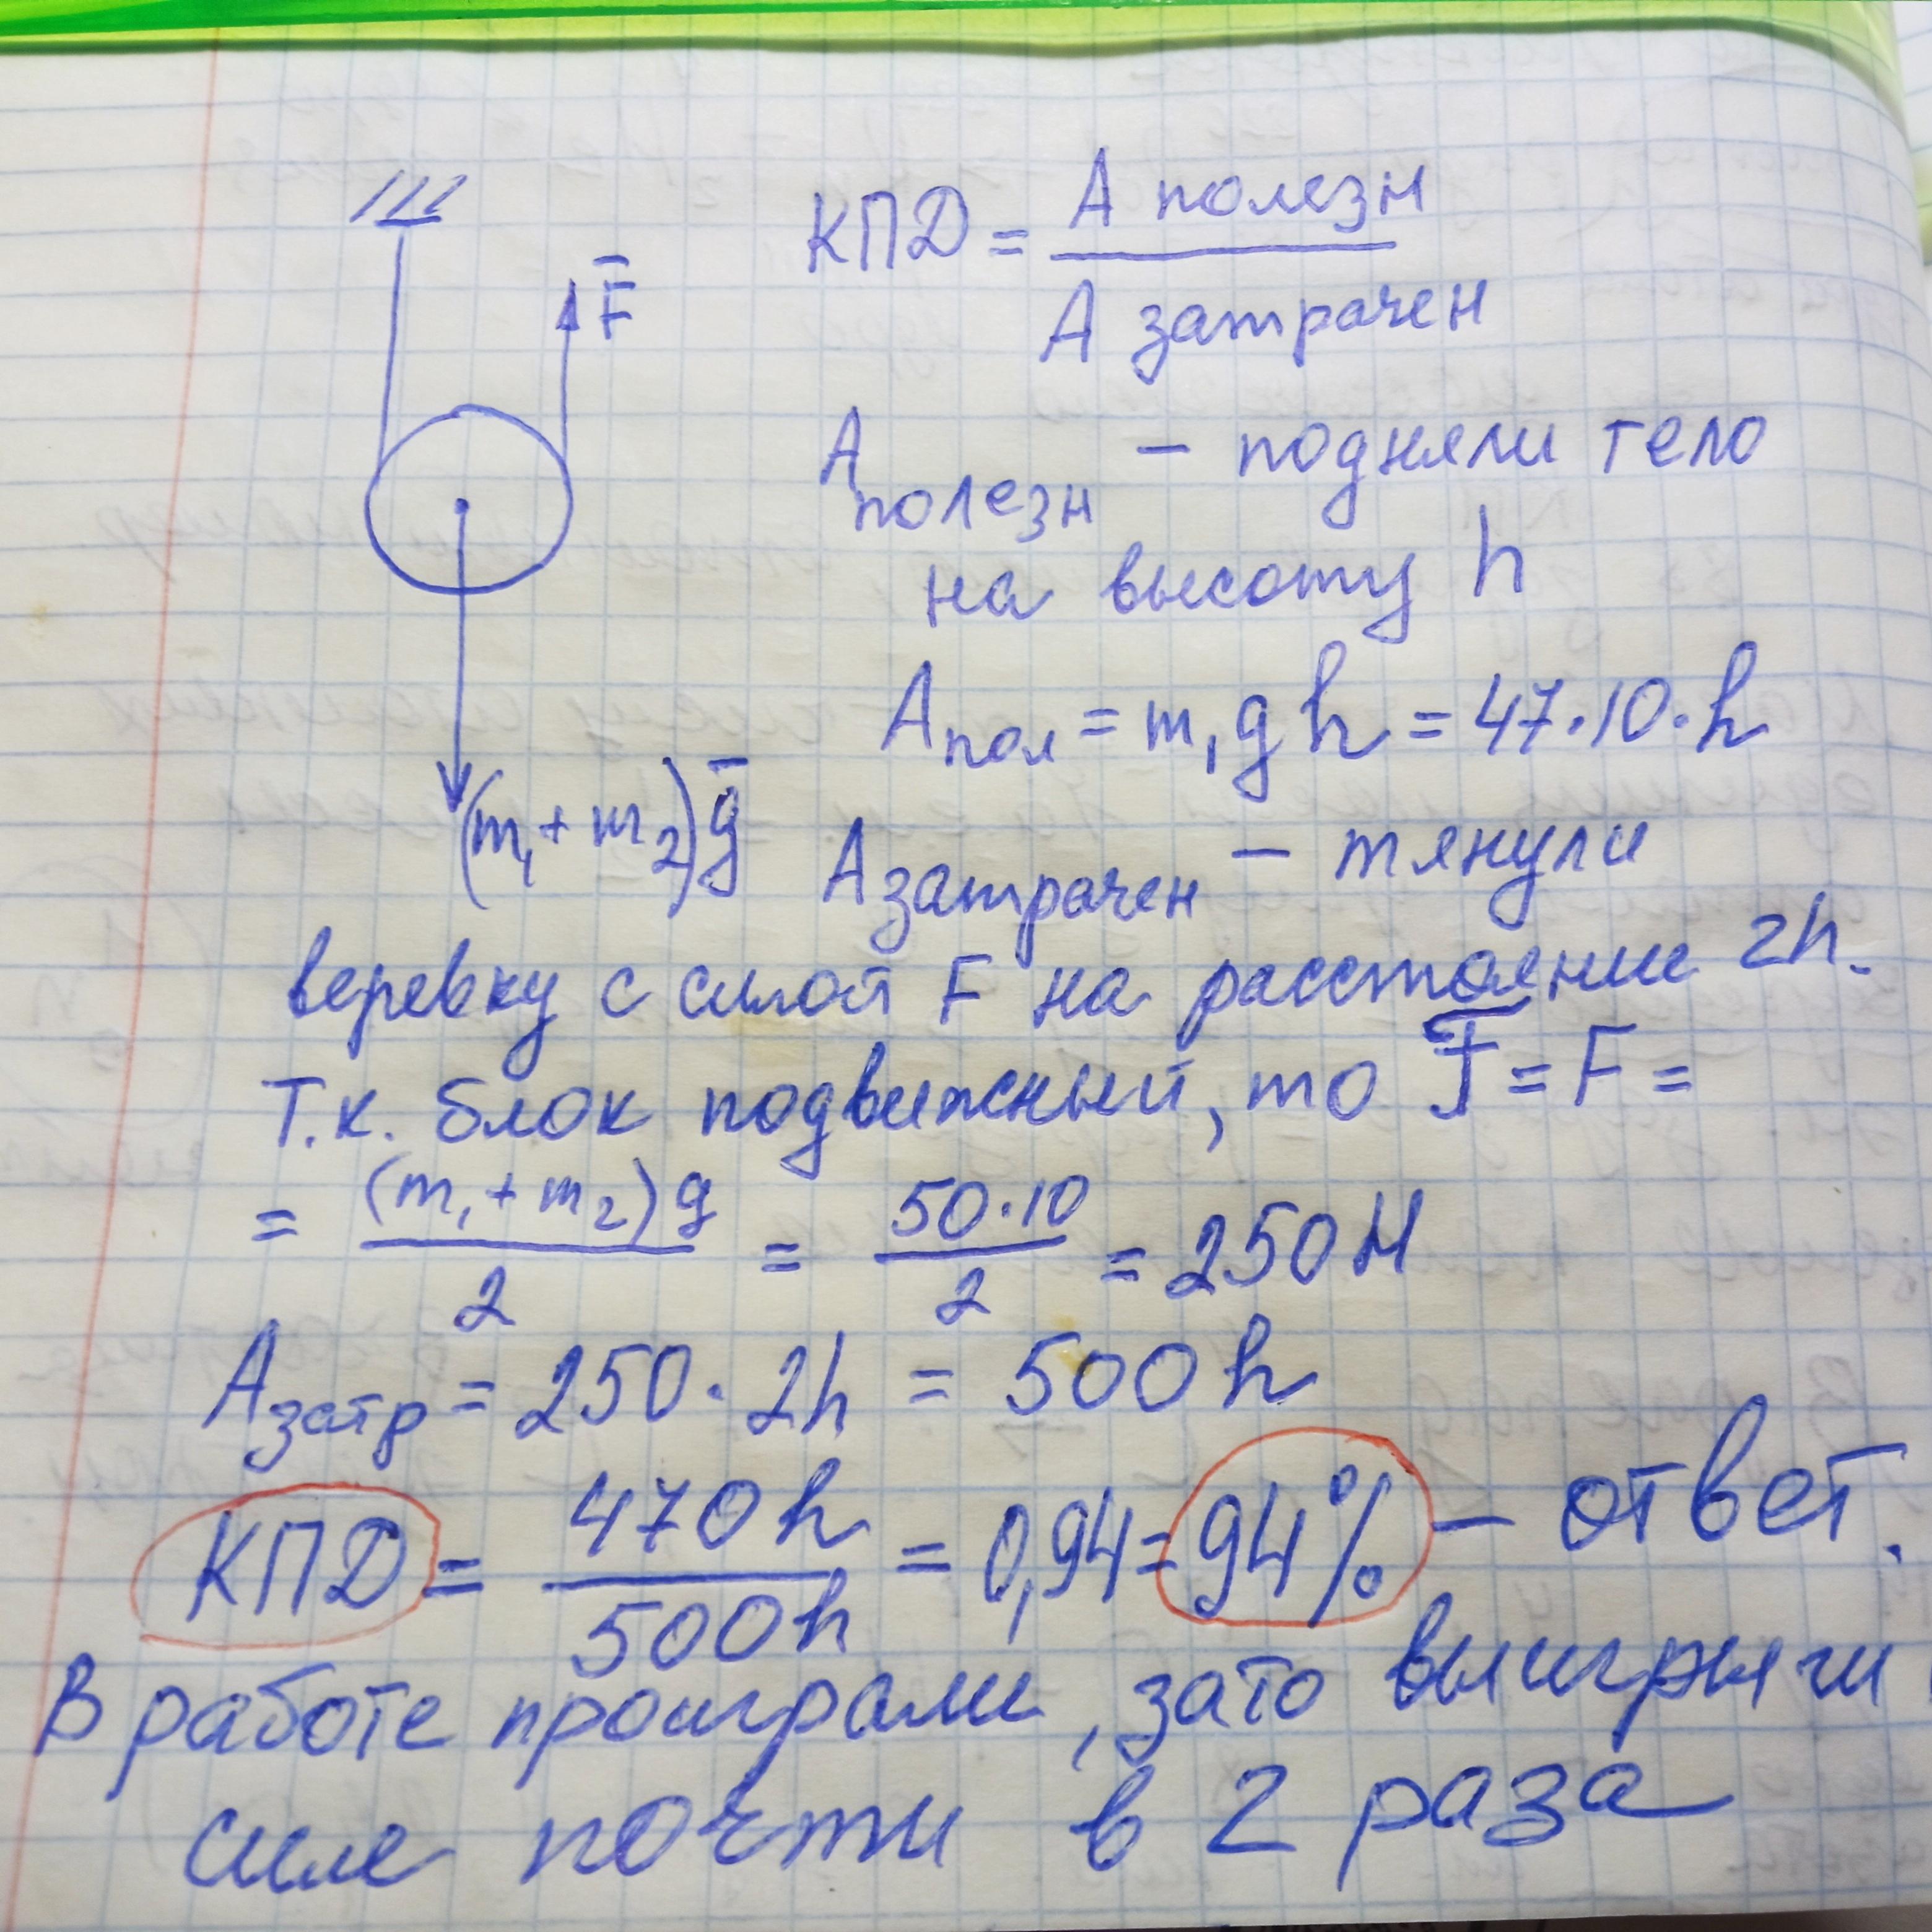 КПД = A полезн
A затрачен
F̄
A полезн – подняли тело
на высоту h
Aпол = m₁gh = 47·10·h
(m₁+m₂)ḡ
Aзатрачен – тянули
веревку с силой F на расстояние 2h.
Т.к. блок подвижный, то T = F =
= (m₁+m₂)g / 2 = 50·10 / 2 = 250Н
Aзатр = 250·2h = 500h
КПД = 470h / 500h = 0,94 = 94% – ответ.
В работе проиграли, зато выигрыш
силе почти в 2 раза